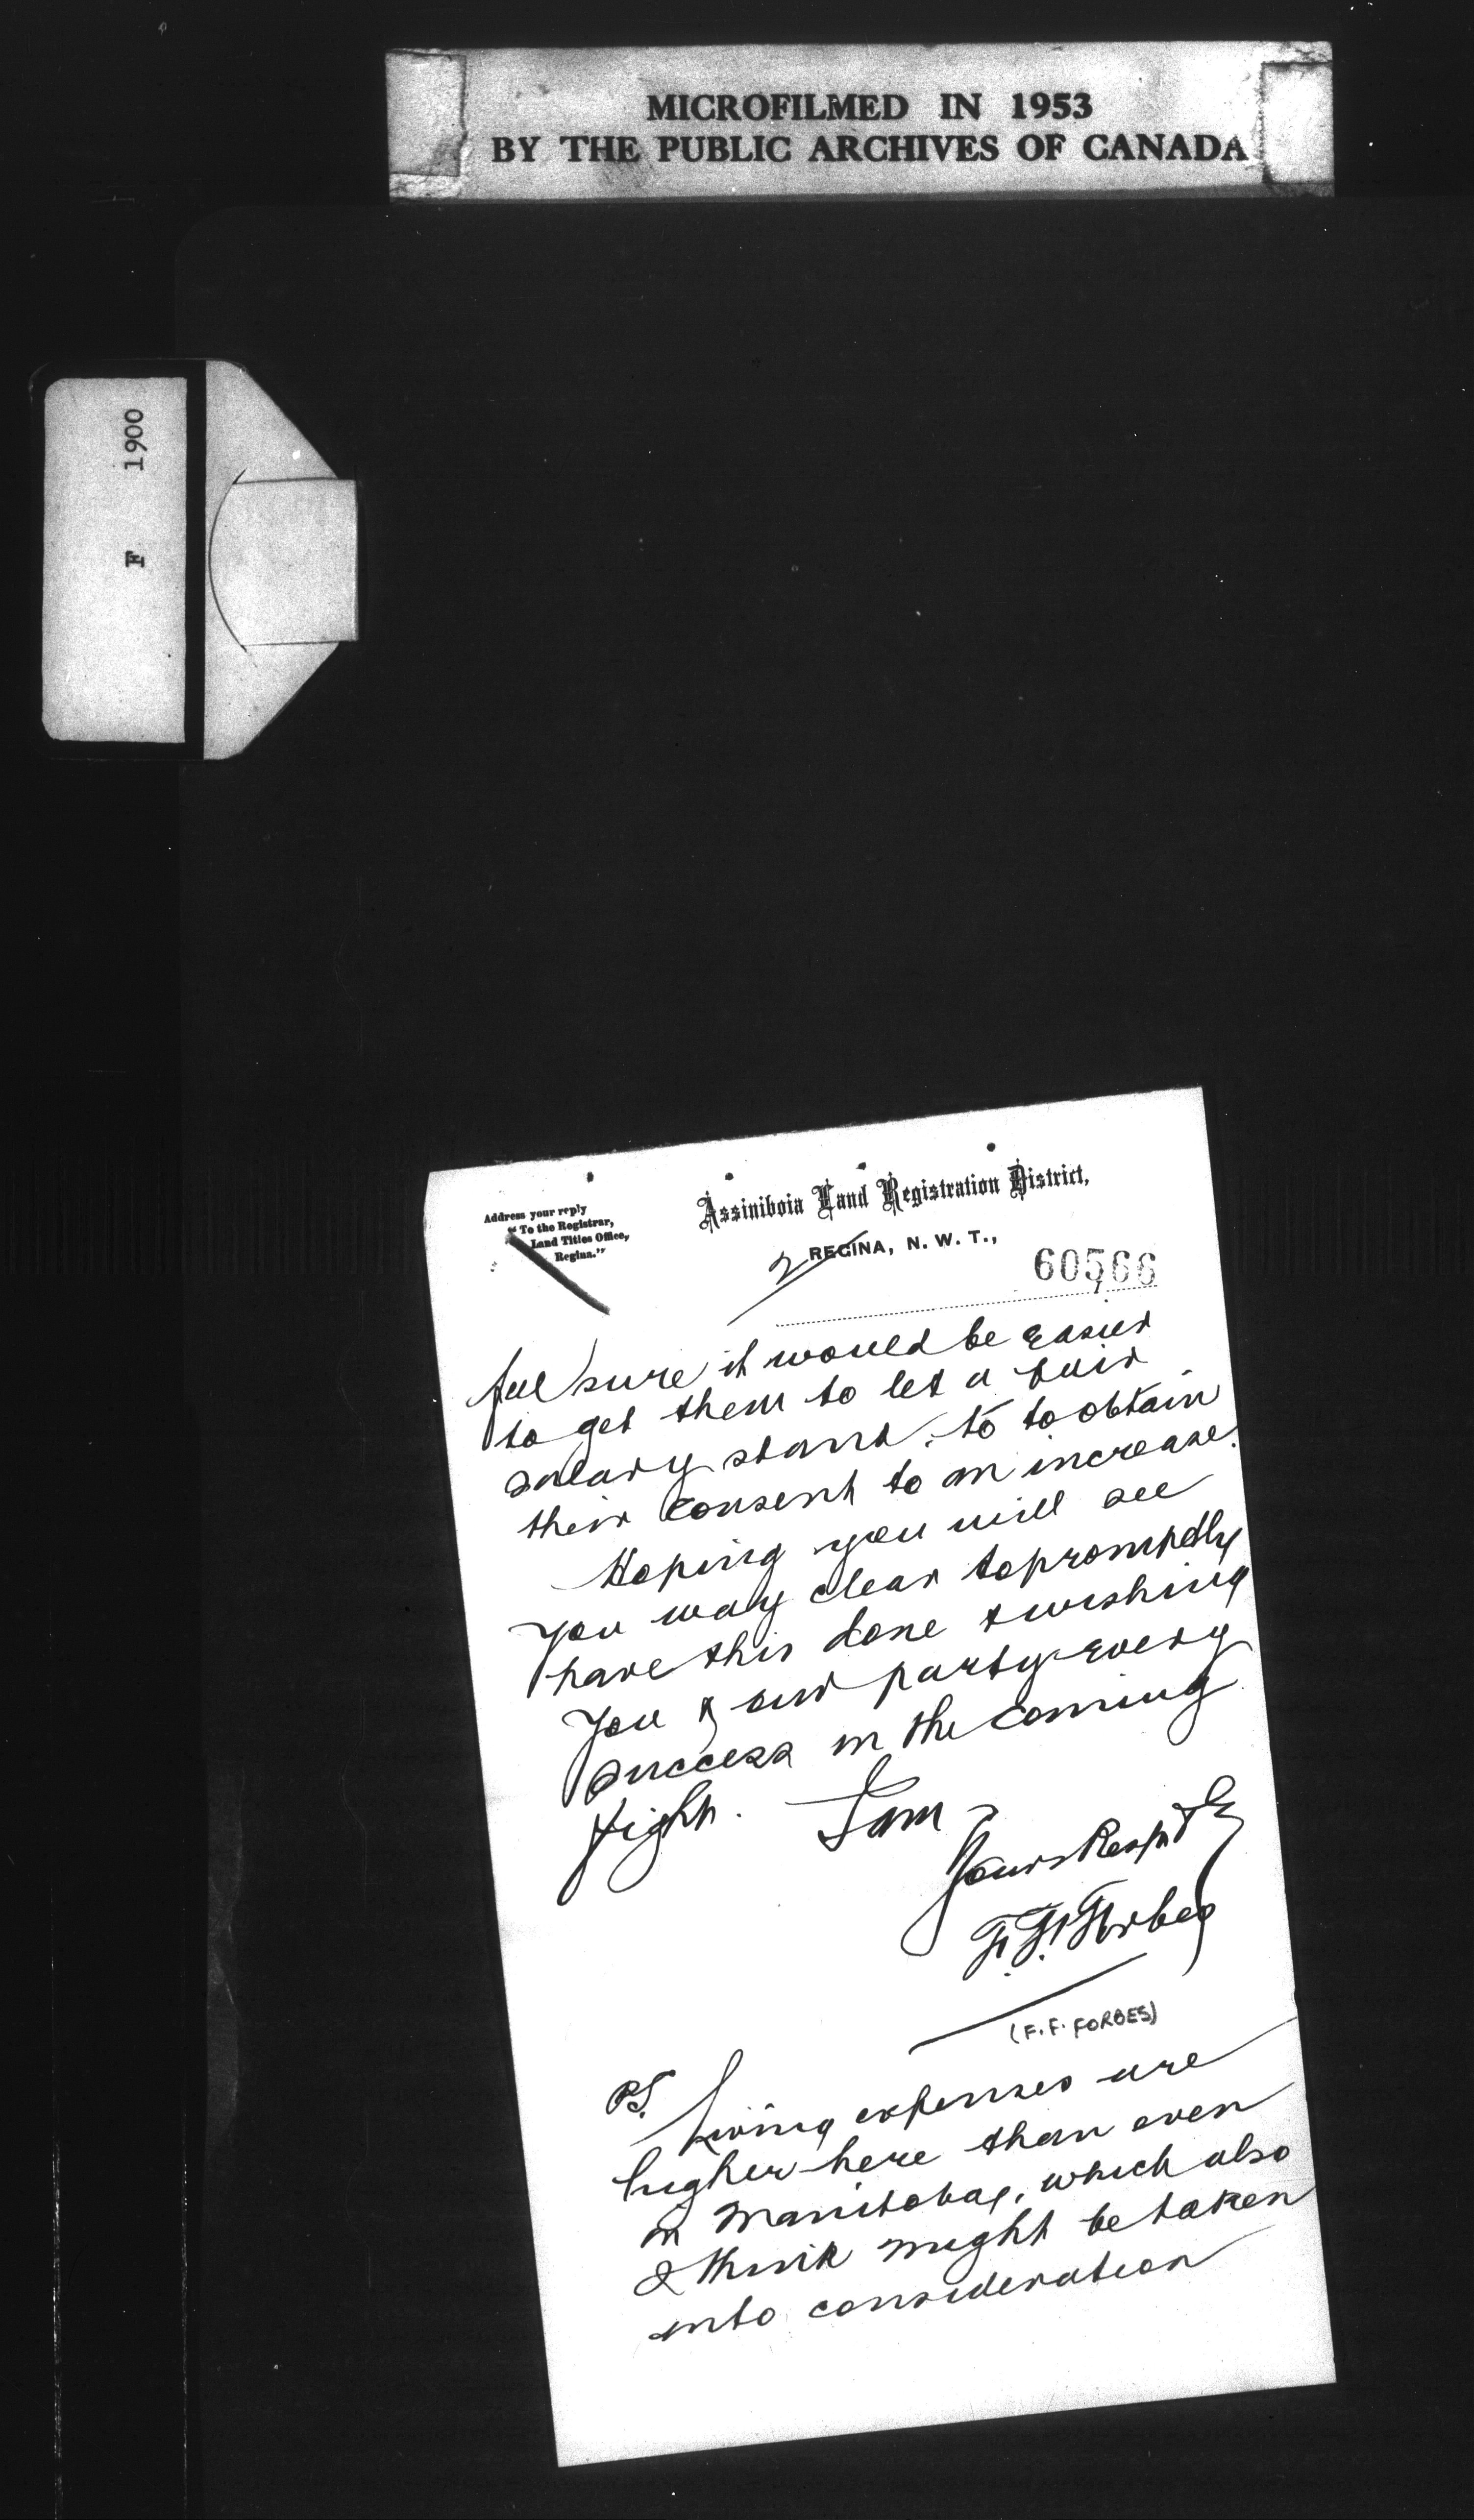 MICROFILMED IN 1953
BY THE PUBLIC ARCHIVES OF CANADA
F 1900
Address your reply
"To the Registrar,
Land Titles Office,
Regina."
Assiniboia Land Registration District,
REGINA, N. W. T.,
2
60566
feel sure it would be easier
to get them to let a fair
salary stand, to to obtain
their consent to an increase.
Hoping you will see
you way clear to promptly
have this done & wishing
you & our party every
success in the coming
fight. I am
Yours Respectfly
F. F. Forbes
(F. F. FORBES)
P.S. Living expenses are
higher here than even
in Manitoba, which also
I think might be taken
into consideration